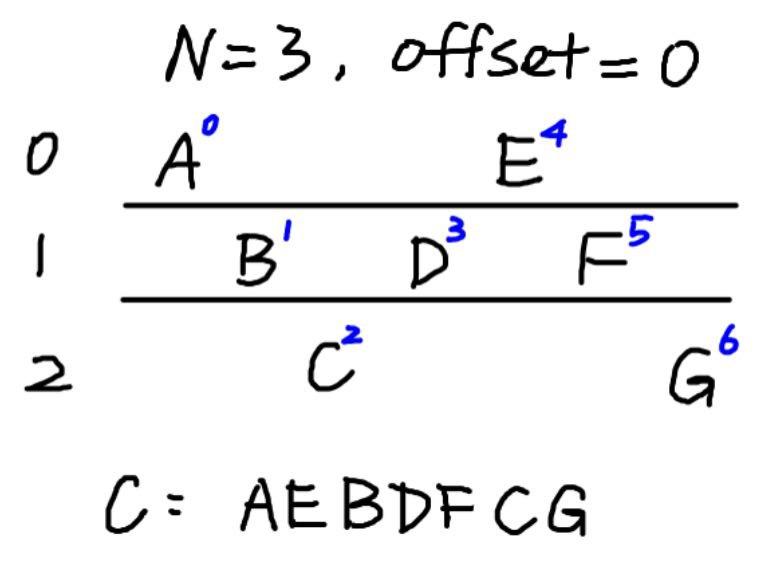 N=3, offset=0
0 A⁰ E⁴
1 B¹ D³ F⁵
2 C² G⁶
C= AEBDFCG